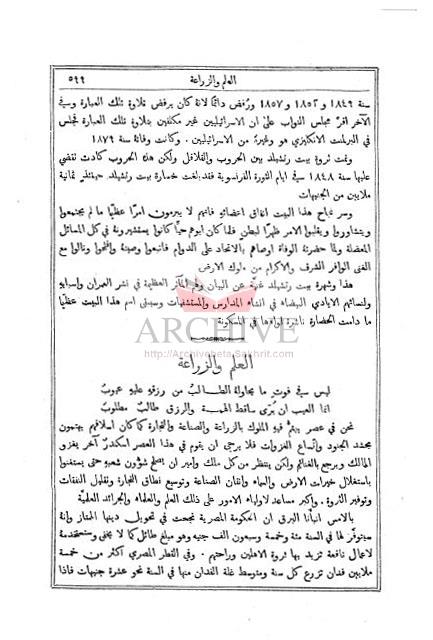 العلم والزراعة
٥٩٩
سنة ١٨٤٩ و١٨٥٢ و١٨٥٧ ورُفض دائمًا لانهُ كان يرفض تلاوة تلك العبارة وفي
الآخر اقرَّ مجلس النواب على ان الاسرائيليين غير مكلفين بتلاوة تلك العبارة فجلس
في البرلمنت الانكليزي هو وغيرهُ من الاسرائيليين . وكانت وفاتهُ سنة ١٨٧٩
ونمت ثروة بيت رتشيلد بين الحروب والقلاقل ولكن هذه الحروب كادت تقضي
عليها سنة ١٨٤٨ في ايام الثورة الفرنسوية فقد بلغت خسارة بيت رتشيلد حينئذٍ ثمانية
ملايين من الجنيهات
وسر نجاح هذا البيت اتفاق اعضائهِ فانهم لا يبرمون امرًا عظيمًا ما لم يجتمعوا
ويتشاوروا ويقلبوا الامر ظهرًا لبطن كما كان ابوهم حيًّا كانوا يستشيرونهُ في كل المسائل
المعضلة ولما حضرتهُ الوفاة اوصاهم بالاتحاد على الدوام فاتبعوا وصيتهُ وافلحوا ونالوا مع
الغنى الوافر الشرف والاكرام من ملوك الارض
هذا وشهرة بيت رتشيلد غنية عن البيان ولهم المآثر العظيمة في نشر العمران ولنسائهِ
ولنسائهم الايادي البيضاء في انشاء المدارس والمستشفيات وسيبقى اسم هذا البيت عظيمًا
ما دامت الحضارة ناشرة لواءها في المسكونة
ARCHIVE
http://Archivebeta.Sakhrit.com
العلم والزراعة
ليس في فوت ما يحاولهُ الطالب من رزقهِ عليهِ عيوبُ
انما العيب ان يُرَى ساقط الهمة والرزق طالبٌ مطلوبُ
نحن في عصر يهتم فيهِ الملوك بالزراعة والصناعة والتجارة كما كان اسلافهم يهتمون
بحشد الجنود واتساع الغزوات فلا يرجى ان يقوم في هذا العصر اسكندر آخر يغزو
الممالك ويرجع بالغنائم ولكن ينتظر من كل ملك وامير ان يصلح شؤون شعبهِ حتى يستغنوا
باستغلال خيرات الارض والمياه واتقان الصناعة وتوسيع نطاق التجارة وتقليل النفقات
وتوفير الثروة . واكبر مساعد لاولياء الامور على ذلك العلم والعلماء والجرائد العلمية
بالامس انبأنا البرق ان الحكومة المصرية نجحت في تحويل دينها الممتاز وانهُ
سيتوفر لها في السنة مئة وخمسة وسبعون الف جنيه وهو مبلغ طائل كما لا يخفى وستخدمهُ
لاعمال نافعة تزيد بها ثروة الاهلين وراحتهم . وفي القطر المصري اكثر من خمسة
ملايين فدان تزرع كل سنة ومتوسط غلة الفدان منها في السنة نحو عشرة جنيهات فاذا